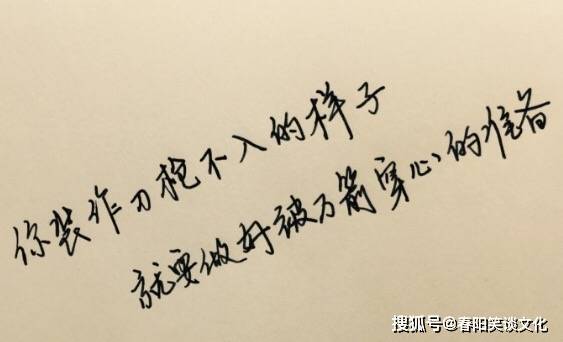 你装作刀枪不入的样子
就要做好被万箭穿心的准备
搜狐号@春阳笑谈文化